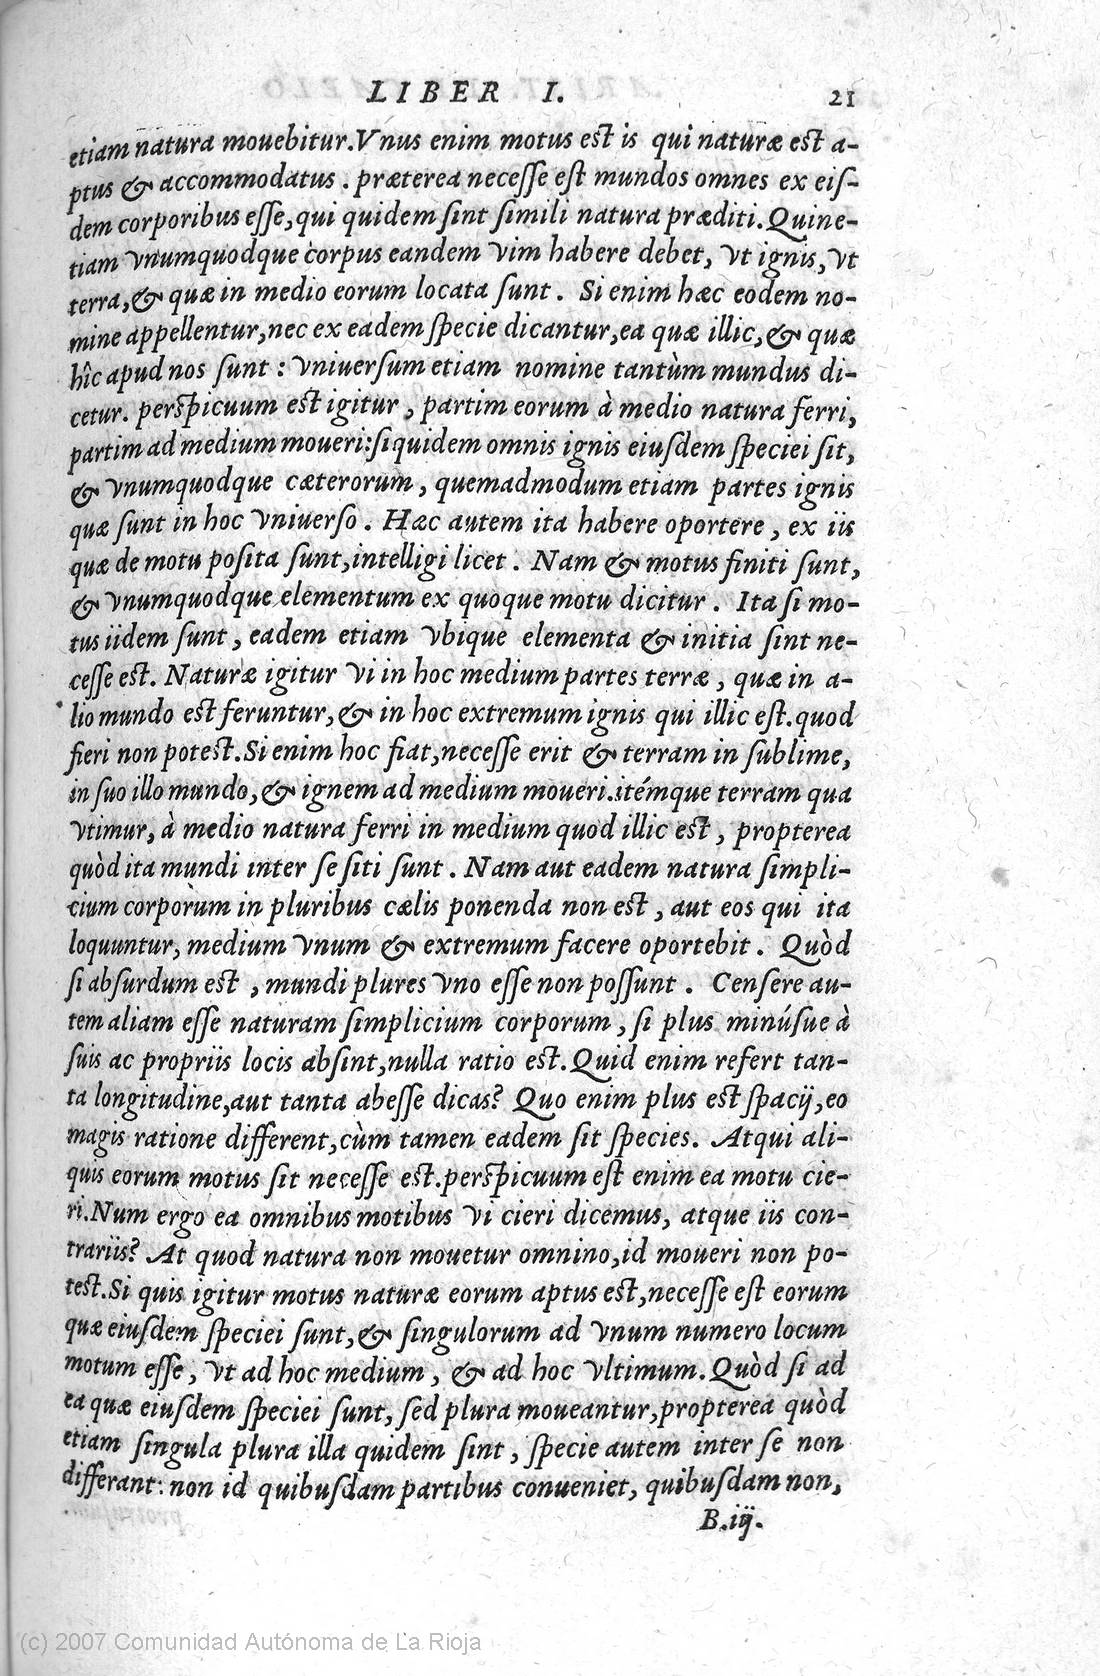 LIBER I. 21
etiam natura mouebitur.Vnus enim motus est is qui naturæ est a-
ptus & accommodatus. præterea necesse est mundos omnes ex eis-
dem corporibus esse,qui quidem sint simili natura præditi.Quine-
tiam vnumquodque corpus eandem vim habere debet, vt ignis, vt
terra,& quæ in medio eorum locata sunt. Si enim hæc eodem no-
mine appellentur,nec ex eadem specie dicantur,ea quæ illic,& quæ
hîc apud nos sunt : vniuersum etiam nomine tantùm mundus di-
cetur. perspicuum est igitur, partim eorum à medio natura ferri,
partim ad medium moueri:siquidem omnis ignis eiusdem speciei sit,
& vnumquodque cæterorum, quemadmodum etiam partes ignis
quæ sunt in hoc vniuerso. Hæc autem ita habere oportere, ex iis
quæ de motu posita sunt,intelligi licet. Nam & motus finiti sunt,
& vnumquodque elementum ex quoque motu dicitur. Ita si mo-
tus iidem sunt, eadem etiam vbique elementa & initia sint ne-
cesse est. Naturæ igitur vi in hoc medium partes terræ, quæ in a-
lio mundo est feruntur,& in hoc extremum ignis qui illic est.quod
fieri non potest.Si enim hoc fiat,necesse erit & terram in sublime,
in suo illo mundo,& ignem ad medium moueri.itémque terram qua
vtimur, à medio natura ferri in medium quod illic est, propterea
quòd ita mundi inter se siti sunt. Nam aut eadem natura simpli-
cium corporum in pluribus cælis ponenda non est, aut eos qui ita
loquuntur, medium vnum & extremum facere oportebit. Quòd
si absurdum est, mundi plures vno esse non possunt. Censere au-
tem aliam esse naturam simplicium corporum, si plus minúsue à
suis ac propriis locis absint,nulla ratio est.Quid enim refert tan-
ta longitudine,aut tanta abesse dicas? Quo enim plus est spacij,eo
magis ratione different,cùm tamen eadem sit species. Atqui ali-
quis eorum motus sit necesse est.perspicuum est enim ea motu cie-
ri.Num ergo ea omnibus motibus vi cieri dicemus, atque iis con-
trariis? At quod natura non mouetur omnino,id moueri non po-
test.Si quis igitur motus naturæ eorum aptus est,necesse est eorum
quæ eiusdem speciei sunt,& singulorum ad vnum numero locum
motum esse, vt ad hoc medium, & ad hoc vltimum.Quòd si ad
ea quæ eiusdem speciei sunt, sed plura moueantur,propterea quòd
etiam singula plura illa quidem sint, specie autem inter se non
differant: non id quibusdam partibus conueniet, quibusdam non,
B.iij.
(c) 2007 Comunidad Autónoma de La Rioja